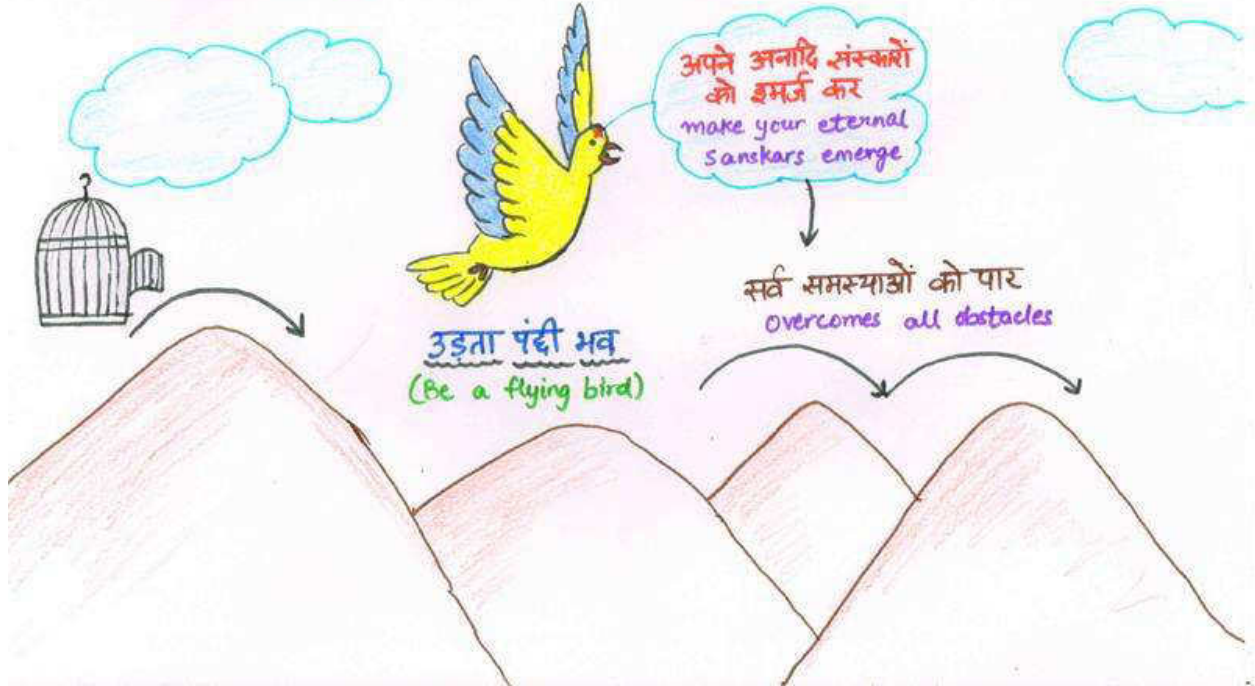 अपने अनादि संस्कारों
को इमर्ज कर
make your eternal
sanskars emerge
सर्व समस्याओं को पार
overcomes all obstacles
उड़ता पंछी भव
(Be a flying bird)